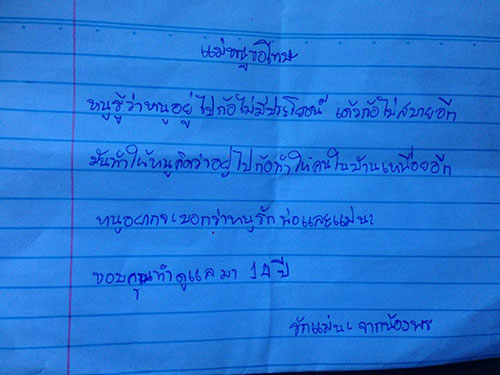 แม่หนูขอโทษ
หนูรู้ว่าหนูอยู่ไปก้อไม่มีประโยชน์ แล้วก้อไม่สบายอีก
มันทำให้หนูคิดว่าอยู่ไปก้อทำให้คนในบ้านเหนื่อยอีก
หนูอยากจะบอกว่าหนูรักพ่อและแม่นะ
ขอบคุณที่ดูแลมา 14 ปี
รักแม่นะ จากน้องพร